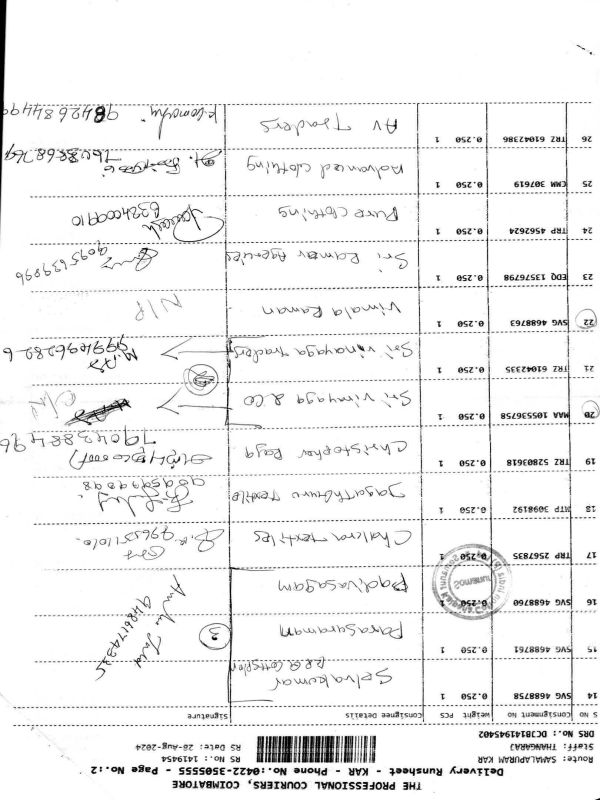 THE PROFESSIONAL COURIERS, COIMBATORE
Delivery Runsheet - KAR - Phone No.:0422-3505555 - Page No.:2
Route: SAMALAPURAM KAR
Staff: THANGARAJ
DRS No.: DCJB14194S402
RS No.: 1419454
RS Date: 28-Aug-2024
S No Consignment No Weight PCS Consignee Details Signature
14 SVG 4688758 0.250 1 Selvakumar
15 SVG 4688761 0.250 1 Parasuraman 3
16 SVG 4688760 0.250 1 Padivasagam
17 TRP 2567835 0.250 1 Chakra textiles
18 MTP 3098192 0.250 1 Jagathguru textile
19 TRZ 52803618 0.250 1 Christopher Raja 7904388496
20 MAA 105536758 0.250 1 Sri vinayaga & co
21 TRZ 61042335 0.250 1 Sri vinayaga traders 9994096282 6
22 SVG 4688763 0.250 1 Vimala Raman
23 EDQ 13576798 0.250 1 Sri Ramar Agencies 9095639996
24 TRP 4562624 0.250 1 Pure clothing 6324000910
25 CMM 307619 0.250 1 Advanced clothing
26 TRZ 61042386 0.250 1 AV Traders 9842684499